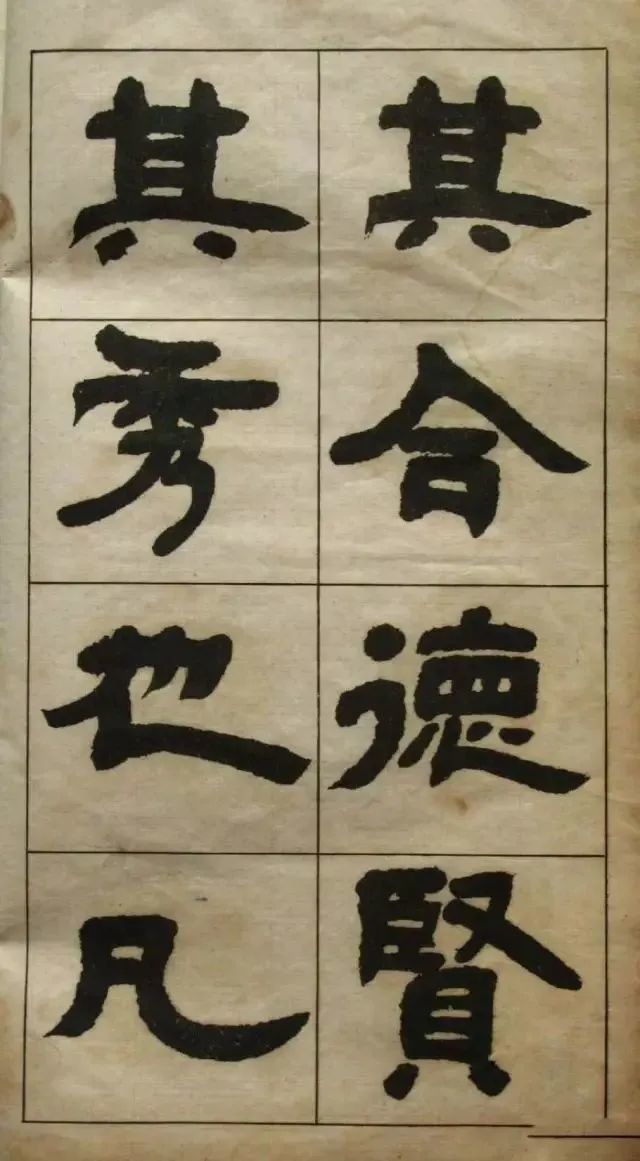 其合德賢
其秀也凡